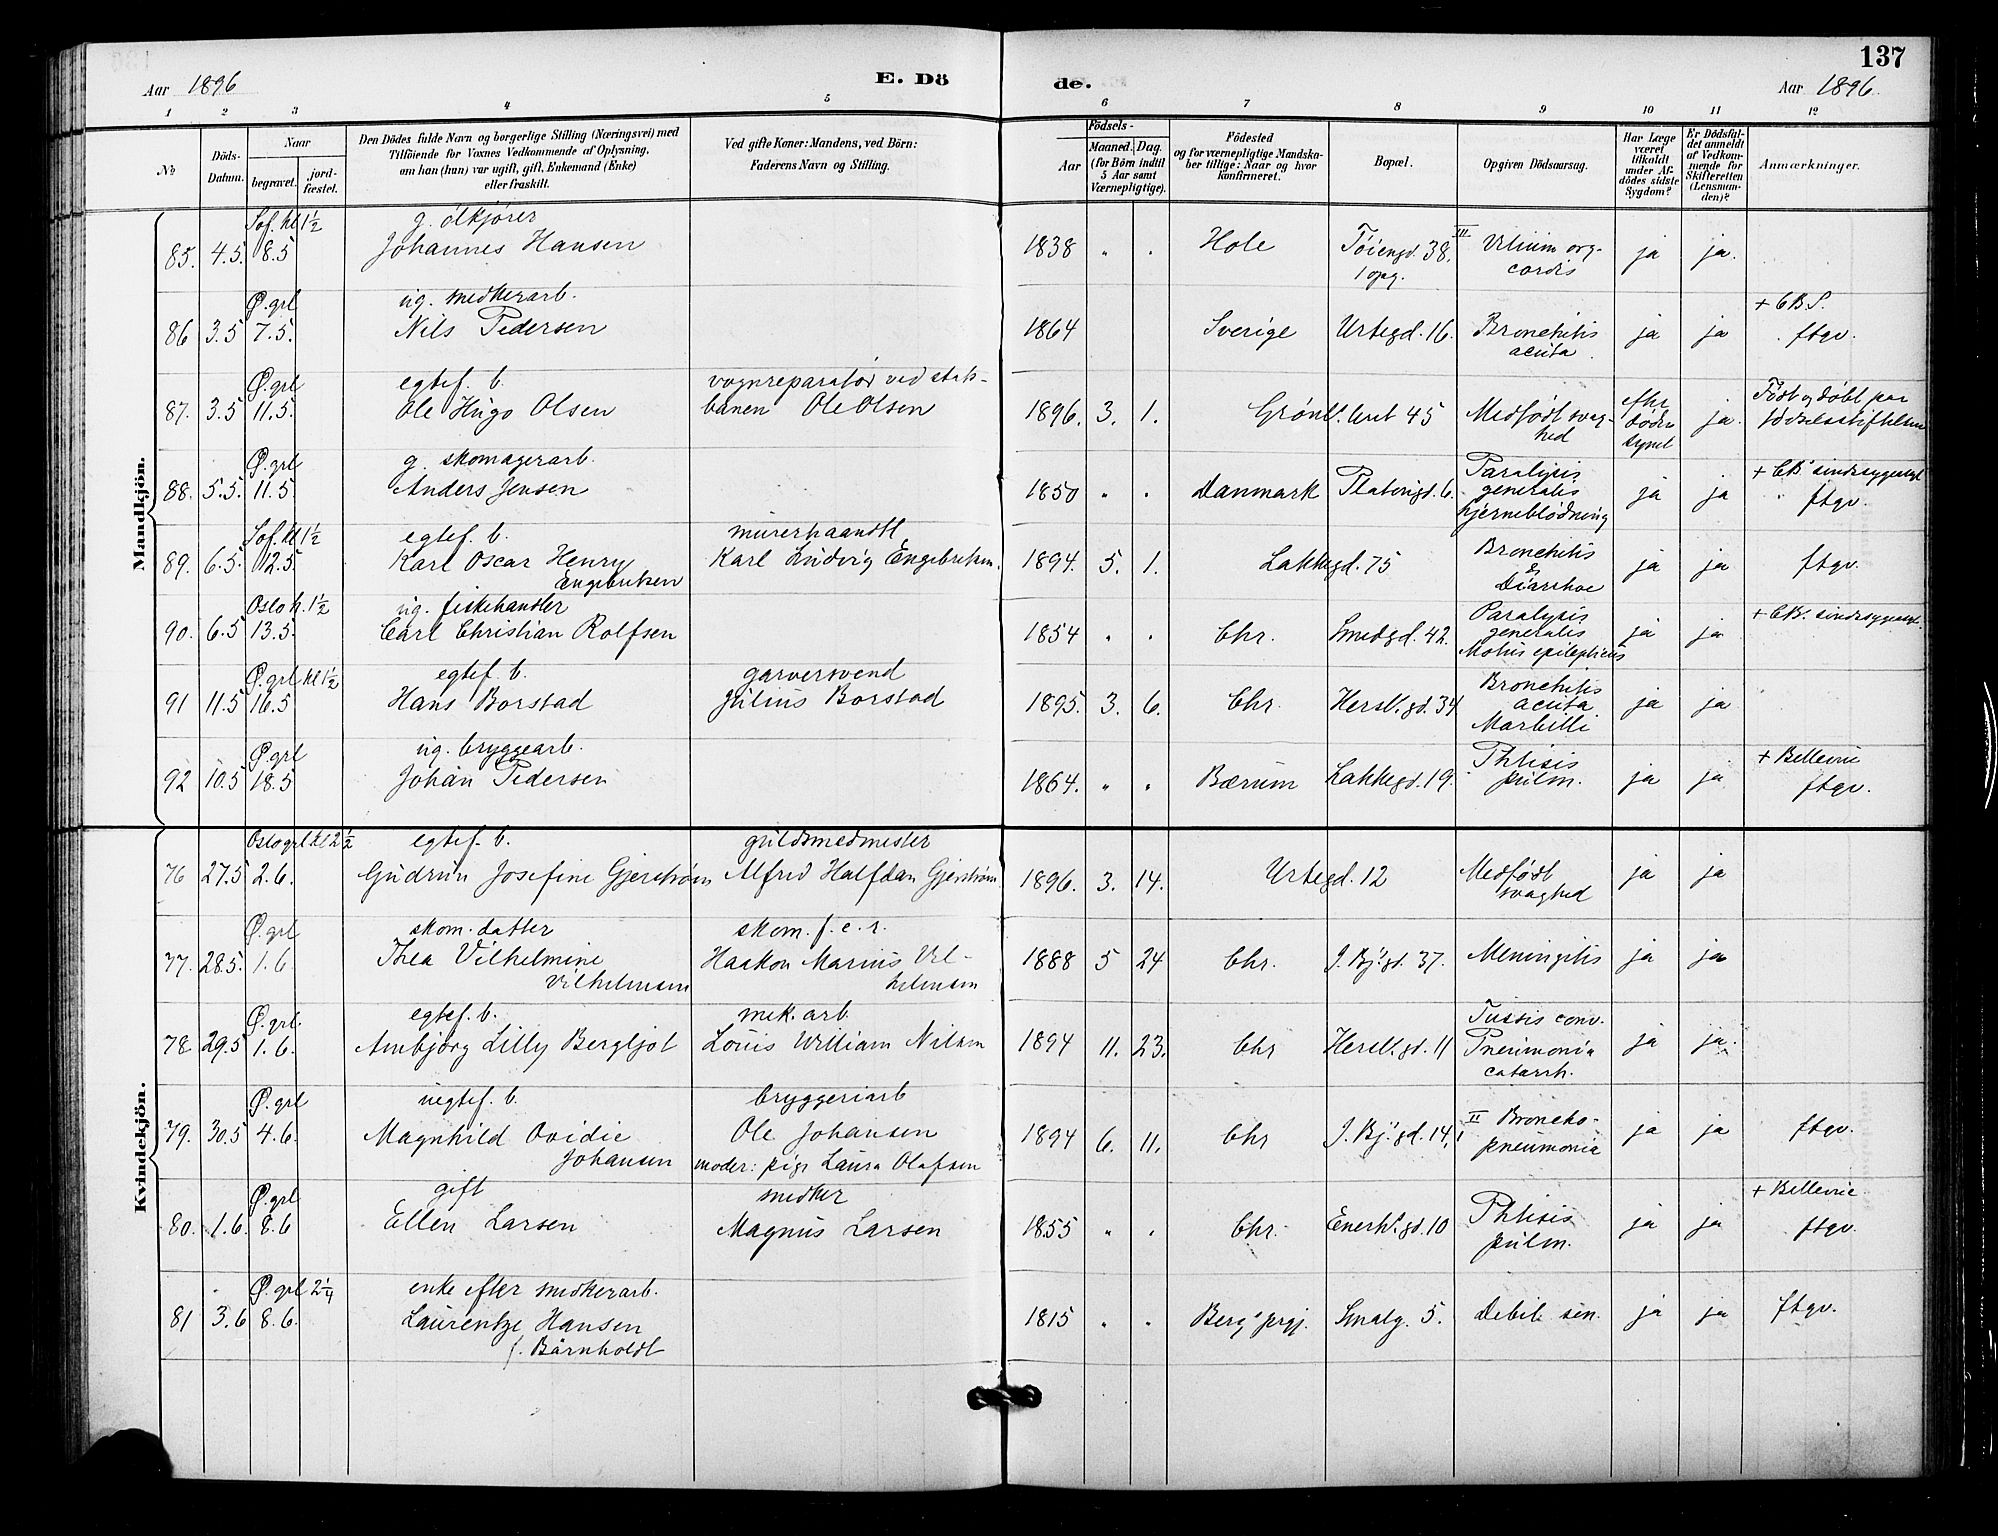 137
Aar 1896 E. Dö de. Aar 1896.
1 2 3 4 5 6 7 8 9 10 11 12
№ Döds-Datum. Naar begravet. jordfæstet. Den Dödes fulde Navn og borgerlige Stilling (Næringsvei) med Tilföiende for Voxnes Vedkommende af Oplysning, om han (hun) var ugift, gift, Enkemand (Enke) eller fraskilt. Ved gifte Koner: Mandens, ved Börn: Faderens Navn og Stilling. Födsels- Aar Maaned. Dag. (for Börn indtil 5 Aar samt Værnepligtige). Födested og for værnepligtige Mandskaber tillige: Naar og hvor konfirmeret. Bopæl. Opgiven Dödsaarsag. Har Læge været tilkaldt under Afdödes sidste Sygdom? Er Dödsfaldet anmeldt af Vedkommende for Skifteretten (Lensmanden)? Anmærkninger.
Mandkjön.
Sof. kl 1½ g. ölkjører
85. 4.5. 8.5 Johannes Hansen 1838 " " Hole Töiengd. 38. III Vitium org. ja ja.
1 opg. cordis
Ø. grl ug. smedkerarb. + CBS.
86 3.5 7.5. Nils Pedersen 1864 Sverige Urtegd. 16. Bronchitis ja ja ftgv.
acuta
Ø. grl egtef. b. vognreparatør ved stats-
87. 3.5 11.5. Ole Hugo Olsen banen Ole Olsen 1896. 3. 1. Grønl. leret 45 Medfödt svag- ja. Födt og döbt paa
hed födselsstiftelsen
Ø. grl g. skomagerarb. Paralysis + CB sindssygeasyl
88. 5.5. 11.5 Anders Jensen 1850 " " Danmark Platousgd. 6. generalis ja ja ftgv.
hjerneblödning
Sof. kl 1½ egtef. b. murerhaandl
89. 6.5. 12.5. Karl Oscar Henry Karl Ludvig Engebretsen. 1894. 5. 1. Lakkegd. 75 Bronchitis ja ja ftgv.
Engebretsen & Diarrhoe
Oslo k. 1½ ug. fiskehandler Paralysis + CB. sindssygeasyl.
90. 6.5 13.5. Carl Christian Rolfsen 1854 " " Chr. Smedgd. 42. generalis ja ja
Motus epilepticus
Ø. grl kl 1½ egtef. b. garversvend Bronchitis
91 11.5 16.5 Hans Borstad Julius Borstad 1895. 3. 6. Chr. Hersl. gd. 34 acuta ja ja
Morbilli
Ø. grl ug. bryggearb. Phtisis + Bellevue
92 10.5 18.5 Johan Pedersen 1864. " " Bærum Lakkegd. 19. pulm. ja ja ftgv.
Kvindekjön.
Oslo grl kl 2½ egtef. b. guldsmedmester
76 27.5 2.6. Gudrun Josefine Gjerstrøm Alfred Halfdan Gjerstrøm 1896. 3. 14. Urtegd. 12 Medfödt ja ja
svaghed
Ø. grl skom. datter skom. f. e. r.
77. 28.5. 1.6 Thea Vilhelmine Haakon Marius Vil- 1888 5 24 Chr. J. Bj. gd. 37. Meningitis ja ja
Vilhelmsen helmsen
Ø. grl. egtef. b. mek. arb Tussis conv.
78 29.5 1.6. Ambjörg Lilly Bergljot Louis William Nilsen 1894 11. 23. Chr Hersl. gd. 11 Pneumonia ja ja.
catarrh.
Ø. grl uegtef. b. bryggeriarb
79. 30.5 4.6. Magnhild Ovidie Ole Johansen 1894 6. 11. Chr J. Bj. gd. 14. II Broncho- ja ja ftgv.
Johansen moder: pige Laura Olafsen pneumonia
Ø. grl gift smedker + Bellevue
80. 1.6. 8.6 Ellen Larsen Magnus Larsen 1855 " " Chr. Enerh. gd. 10 Phtisis ja ja ftgv.
pulm.
Ø. grl 2¼ enke efter smedkerarb.
81 3.6 8.6. Laurentze Hansen 1815 " " Berg' prgj. Smalg. 5. Debil. sen. ja ja ftgv.
f. Barnholdt